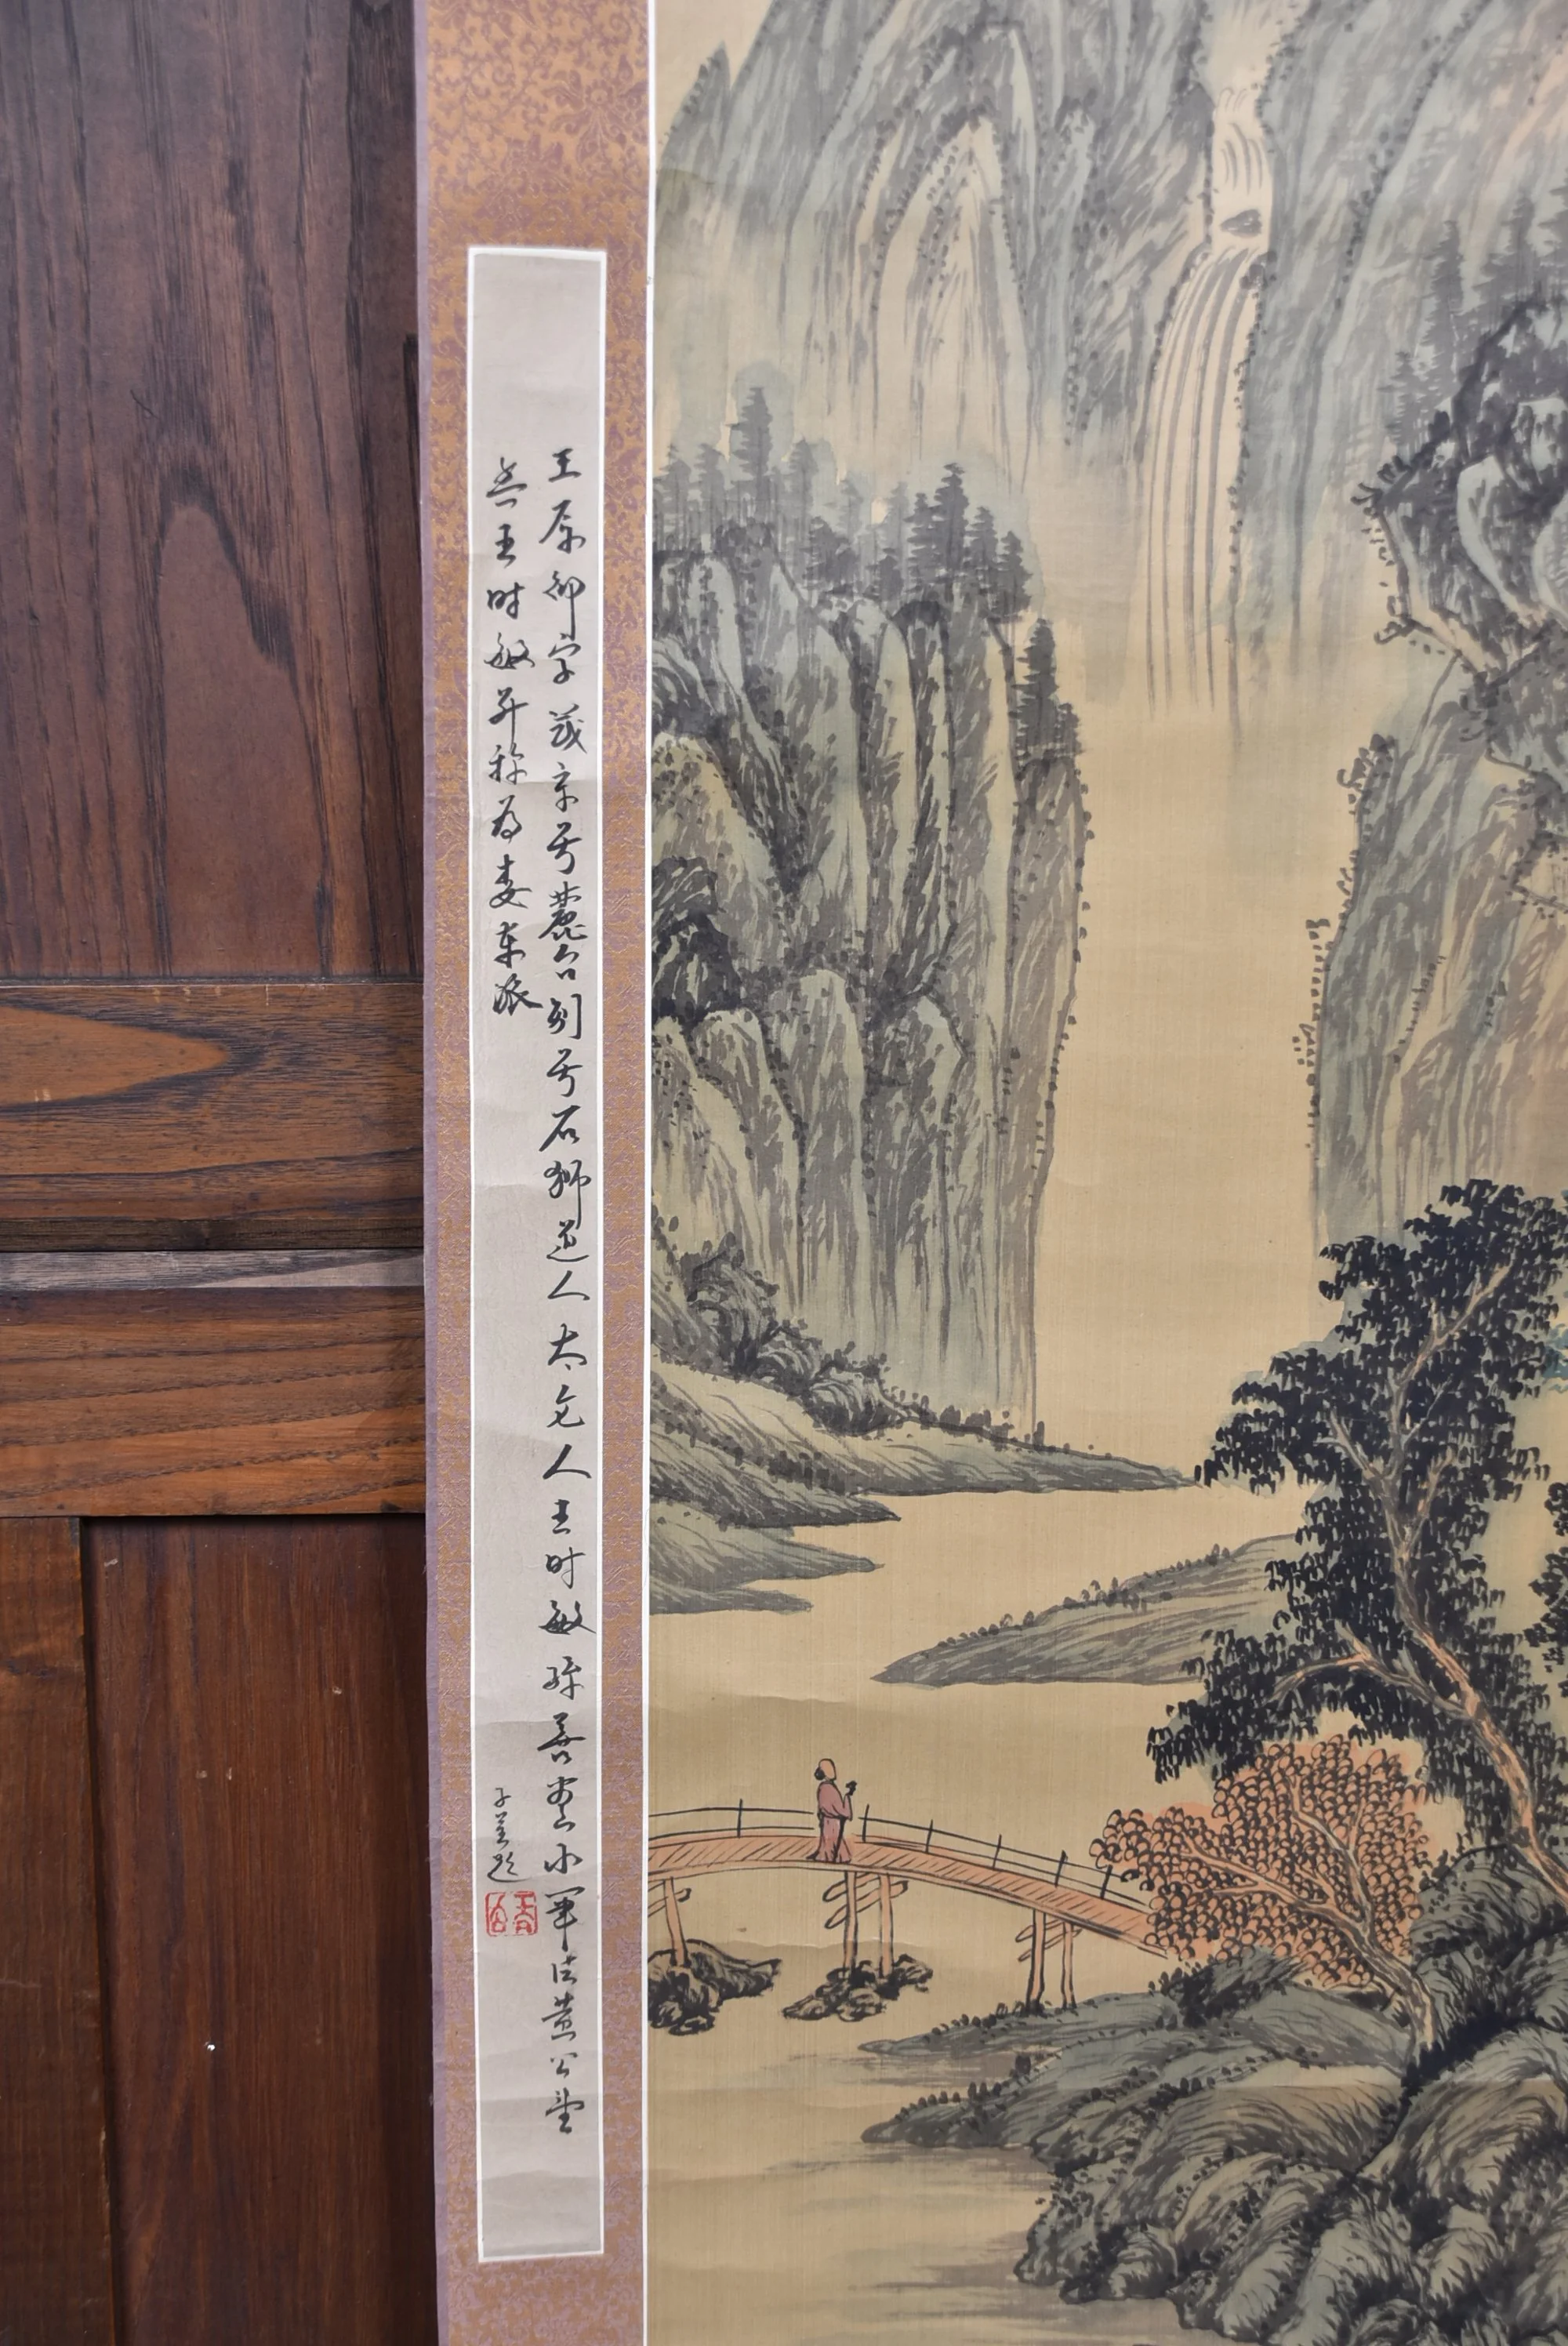 王原祁字茂京号麓台别号石狮道人太仓人王时敏孙善画山水笔法黄公望
与王时敏并称为娄东派
子并题